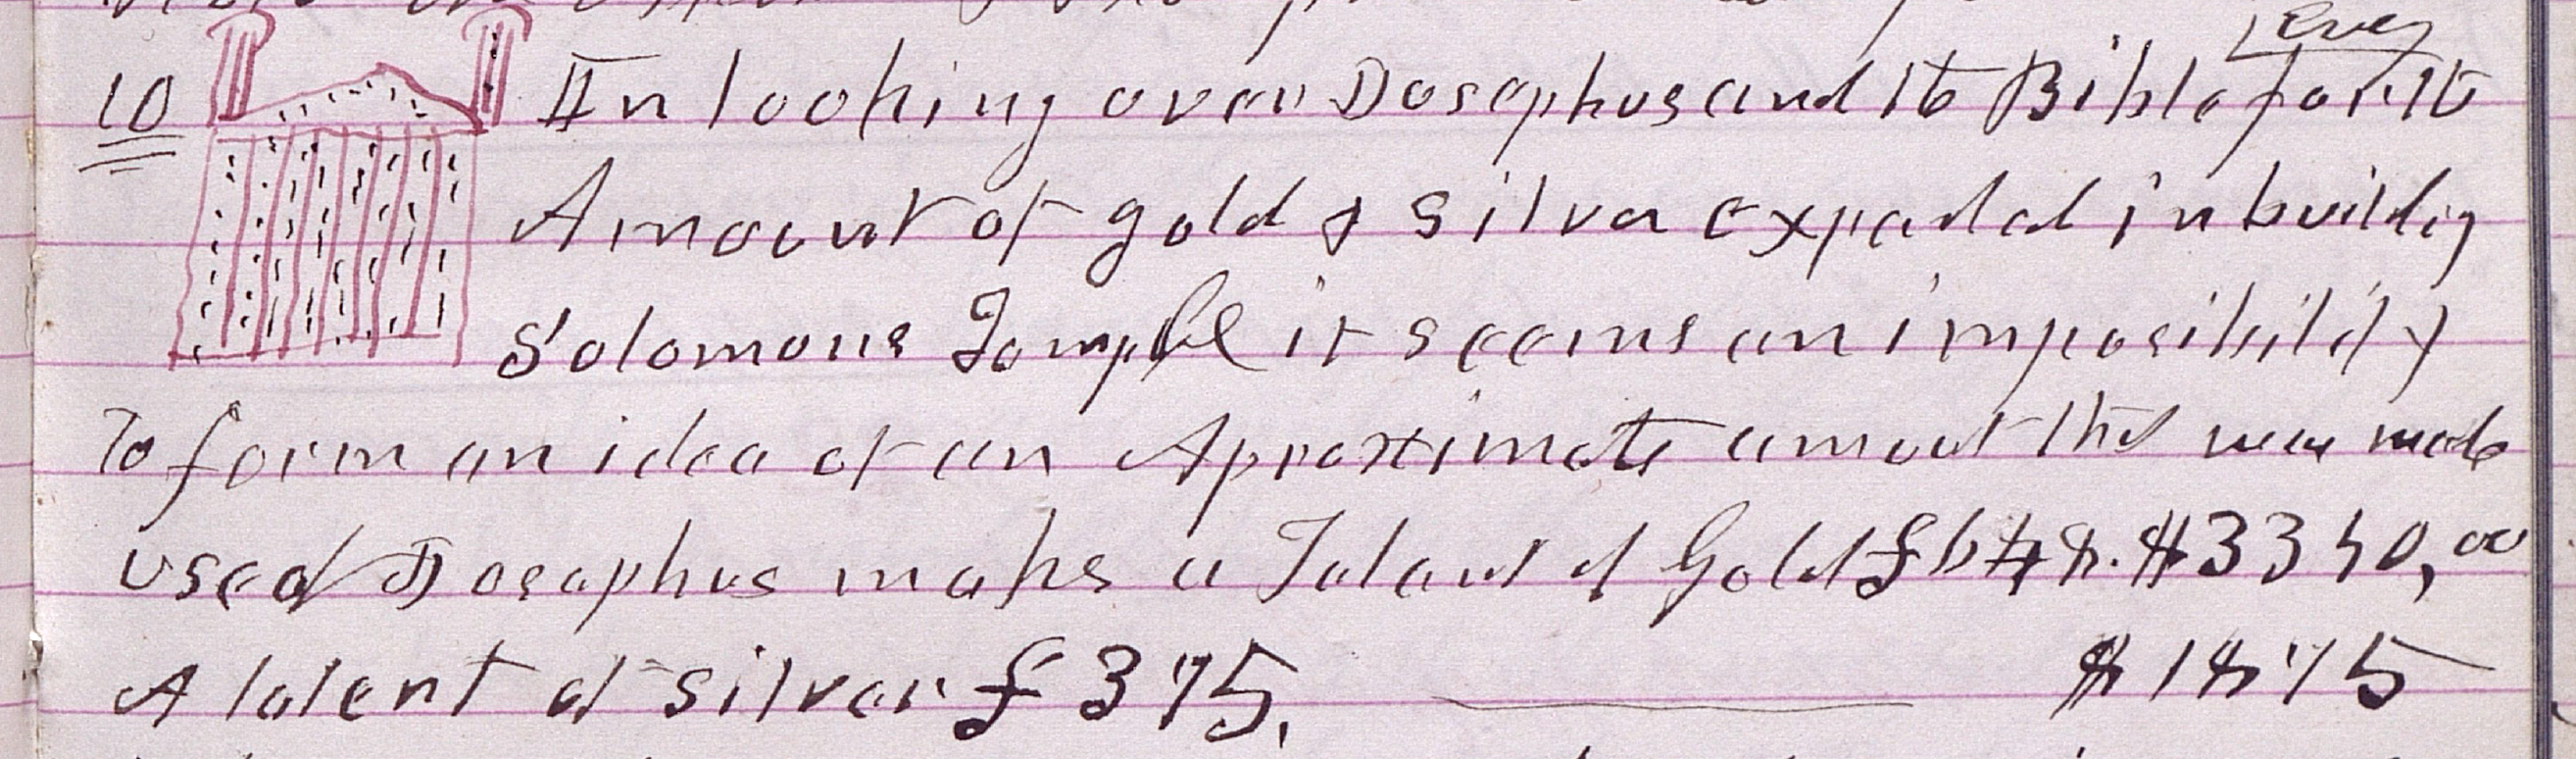 10 In looking over Josephus and the Bible for the
Amount of gold & silver expended in buildig
Solomons Temple it seems an imposibility
To form an idea of an Aproximate amount that was made
used Josephus makes a Talent of Gold £648. $3240,00
A talent of silver £375. $1875